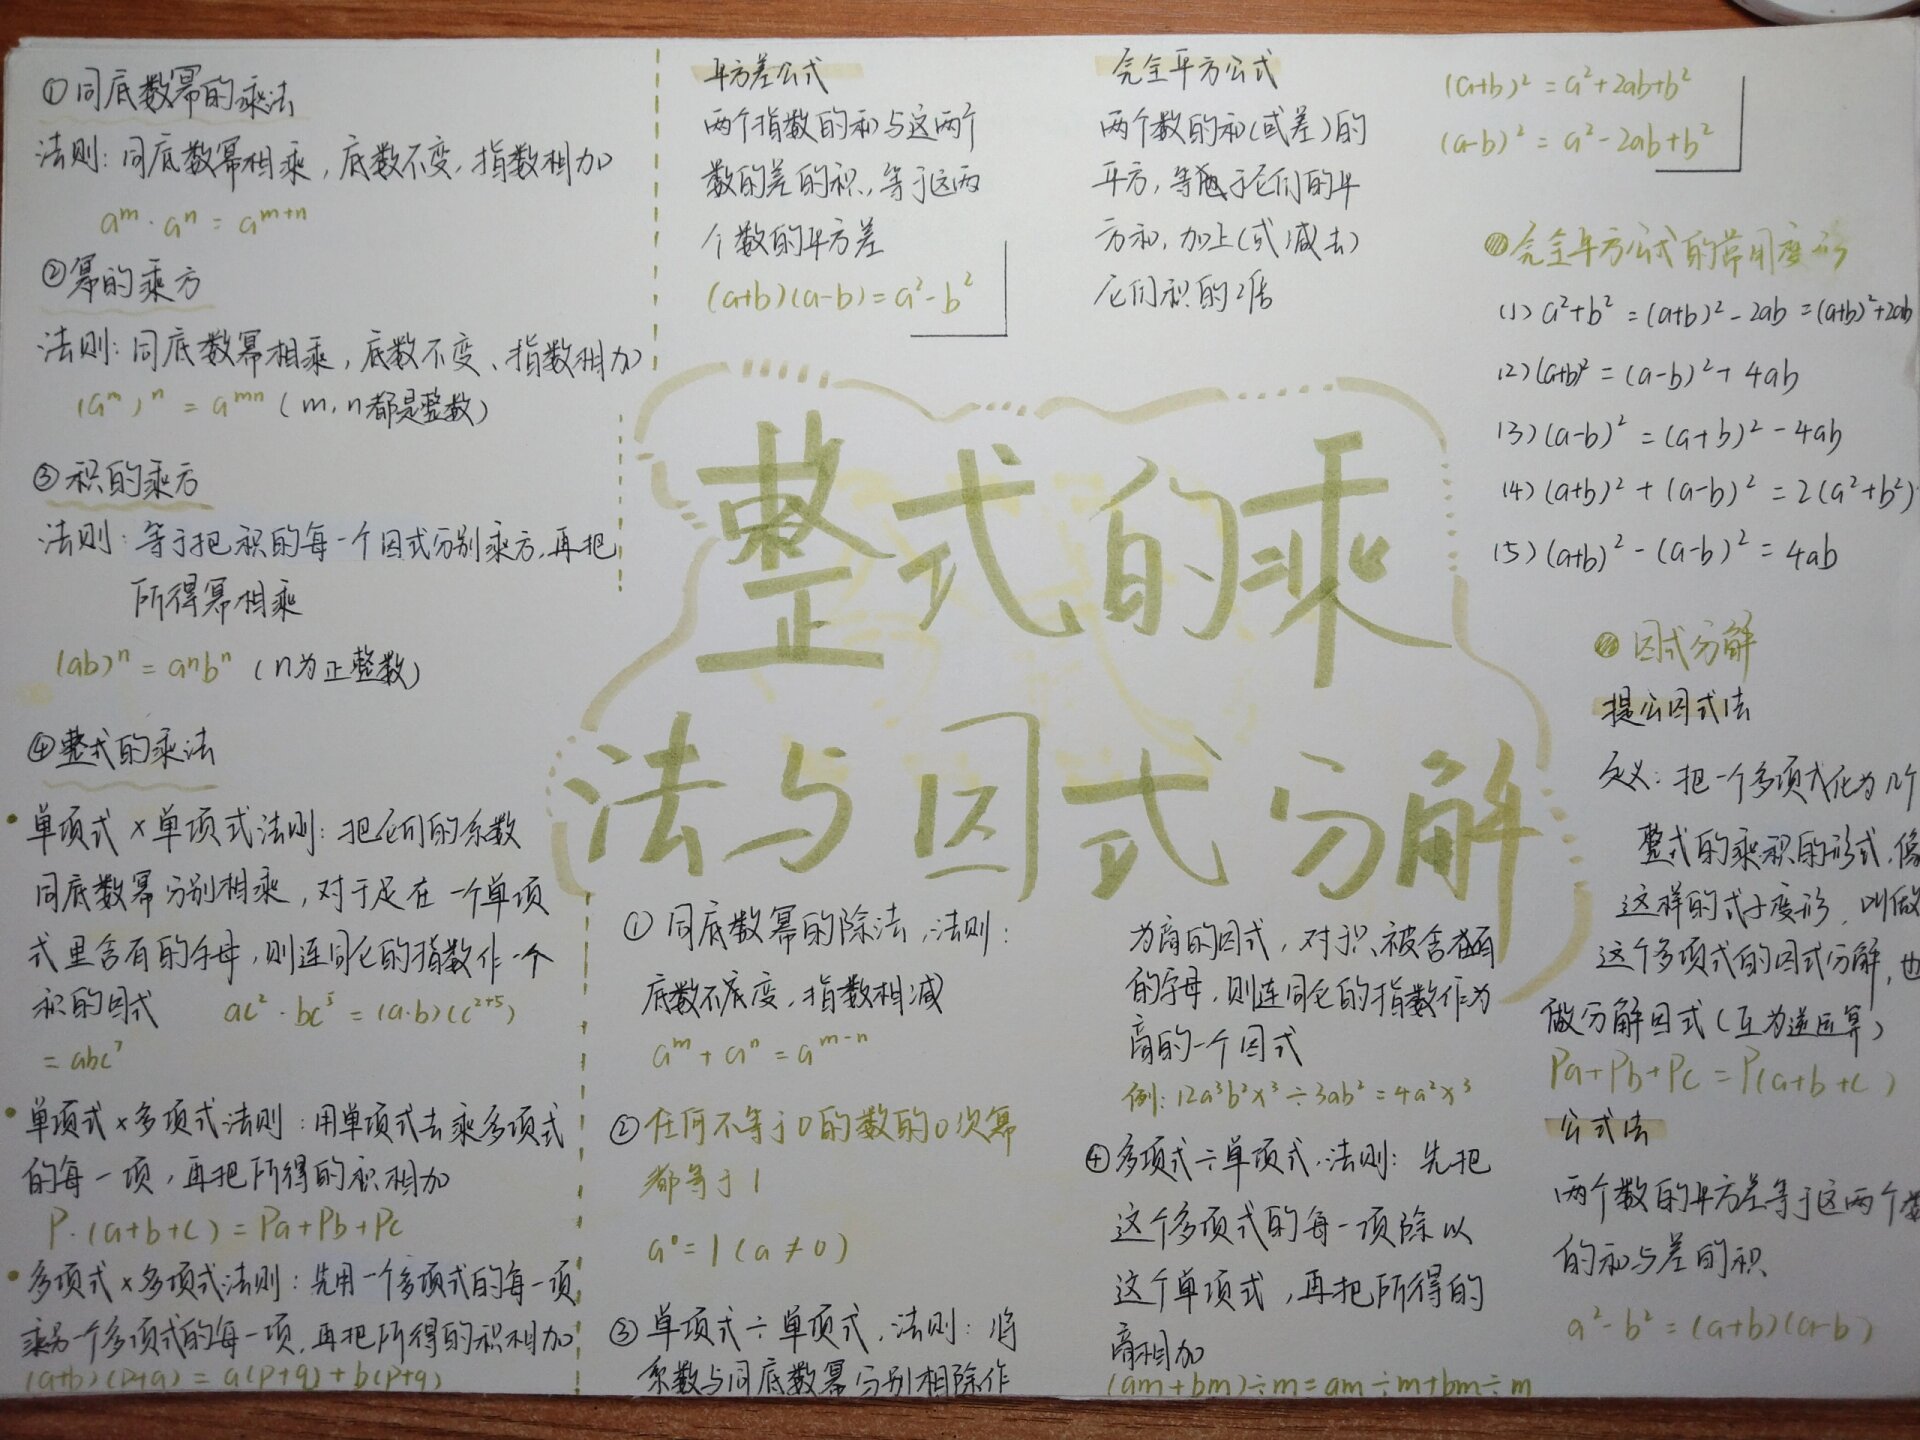 ①同底数幂的乘法
法则:同底数幂相乘,底数不变,指数相加
aᵐ·aⁿ=aᵐ⁺ⁿ
②幂的乘方
法则:同底数幂相乘,底数不变、指数相加
(aᵐ)ⁿ=aᵐⁿ(m,n都是整数)
③积的乘方
法则:等于把积的每一个因式分别乘方,再把
所得幂相乘
(ab)ⁿ=aⁿbⁿ(n为正整数)
④整式的乘法
·单项式×单项式法则:把它们的系数
同底数幂分别相乘,对于只在一个单项
式里含有的字母,则连同它的指数作一个
积的因式 ac²·bc⁵=(a·b)(c²⁺⁵)
=abc⁷
·单项式×多项式法则:用单项式去乘多项式
的每一项,再把所得的积相加
P·(a+b+c)=Pa+Pb+Pc
·多项式×多项式法则:先用一个多项式的每一项
乘另一个多项式的每一项,再把所得的积相加
(a+b)(p+q)=a(p+q)+b(p+q)
平方差公式
两个指数的和与这两个
数的差的积,等于这两
个数的平方差
(a+b)(a-b)=a²-b²
完全平方公式
两个数的和(或差)的
平方,等于它们的平
方和,加上(或减去)
它们积的2倍
(a+b)²=a²+2ab+b²
(a-b)²=a²-2ab+b²
完全平方公式的常用变形
(1)a²+b²=(a+b)²-2ab=(a+b)²+2ab
(2)(a+b)²=(a-b)²+4ab
(3)(a-b)²=(a+b)²-4ab
(4)(a+b)²+(a-b)²=2(a²+b²)
(5)(a+b)²-(a-b)²=4ab
整式的乘
法与因式分解
①同底数幂的除法,法则:
底数不变,指数相减
aᵐ+aⁿ=aᵐ⁻ⁿ
②任何不等于0的数的0次幂
都等于1
a⁰=1(a≠0)
③单项式÷单项式,法则:将
系数与同底数幂分别相除作
为商的因式,对于只被含有
的字母,则连同它的指数作为
商的一个因式
例:12a³b²x³÷3ab²=4a²x³
④多项式÷单项式,法则:先把
这个多项式的每一项除以
这个单项式,再把所得的
商相加
(am+bm)÷m=am÷m+bm÷m
因式分解
提公因式法
定义:把一个多项式化为几个
整式的乘积的形式,像
这样的式子变形,叫做
这个多项式的因式分解,也
做分解因式(互为逆运算)
Pa+Pb+Pc=P(a+b+c)
公式法
两个数的平方差等于这两个数
的和与差的积
a²-b²=(a+b)(a-b)